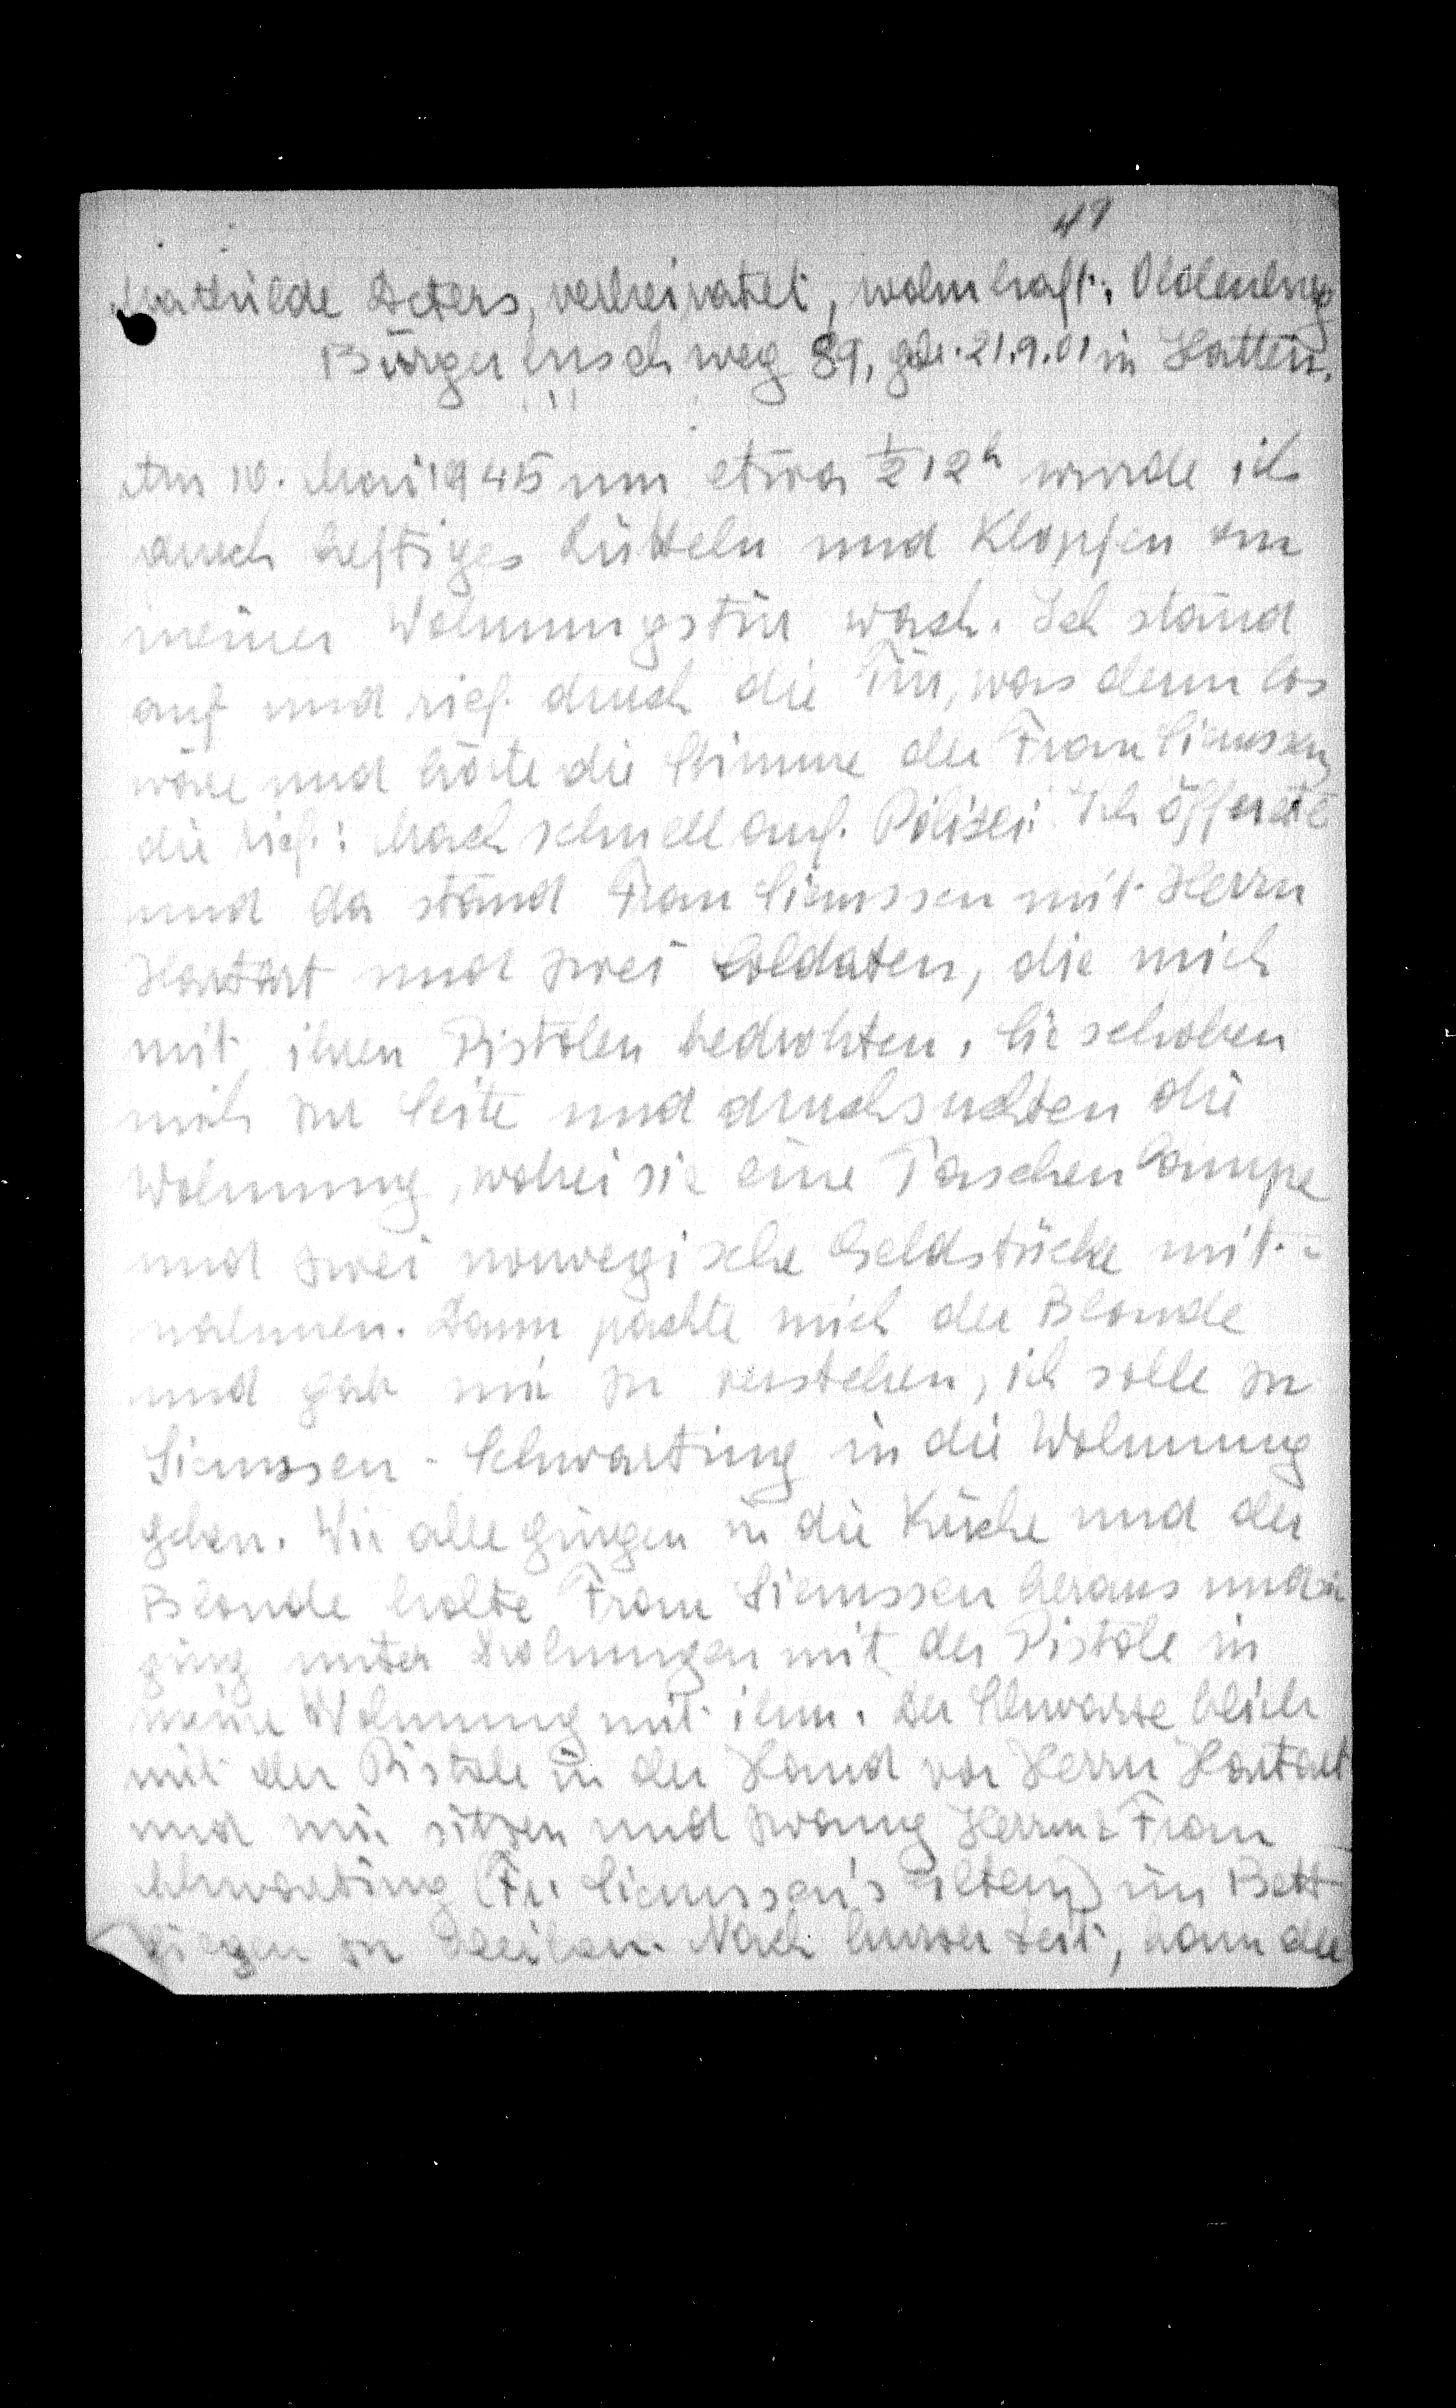 41
Mathilde Deters, verheiratet, wohnhaft: Oldenburg
Bürgerbuschweg 89, geb. 21.9.01 in Hatten.
Am 10. Mai 1945 um etwa ½12h wurde ich
durch heftiges Rütteln und Klopfen an
meiner Wohnungstür wach. Ich stand
auf und rief durch die Tür, was denn los
wäre und hörte die Stimme der Frau Siemssen,
die rief: Mach schnell auf. Polizei! Ich öffnete
und da stand Frau Siemssen mit Herrn
Hartart und zwei Soldaten, die mich
mit ihren Pistolen bedrohten. Sie schoben
mich zur Seite und durchsuchten die
Wohnung, wobei sie eine Taschenlampe
und zwei norwegische Geldstücke mit-
nahmen. Dann packte mich der Blonde
und gab mir zu verstehen, ich solle zu
Siemssen - Schwarting in die Wohnung
gehen. Wir alle gingen in die Küche und der
Blonde holte Frau Siemssen heraus und
ging unter Drohungen mit der Pistole in
meine Wohnung mit ihm. Der Schwarze blieb
mit der Pistole in der Hand vor Herrn Hartart
und mir sitzen und zwang Herrn & Frau
Schwarting (Fr. Siemssen's Eltern) im Bett
liegen zu bleiben. Nach kurzer Zeit, kam der